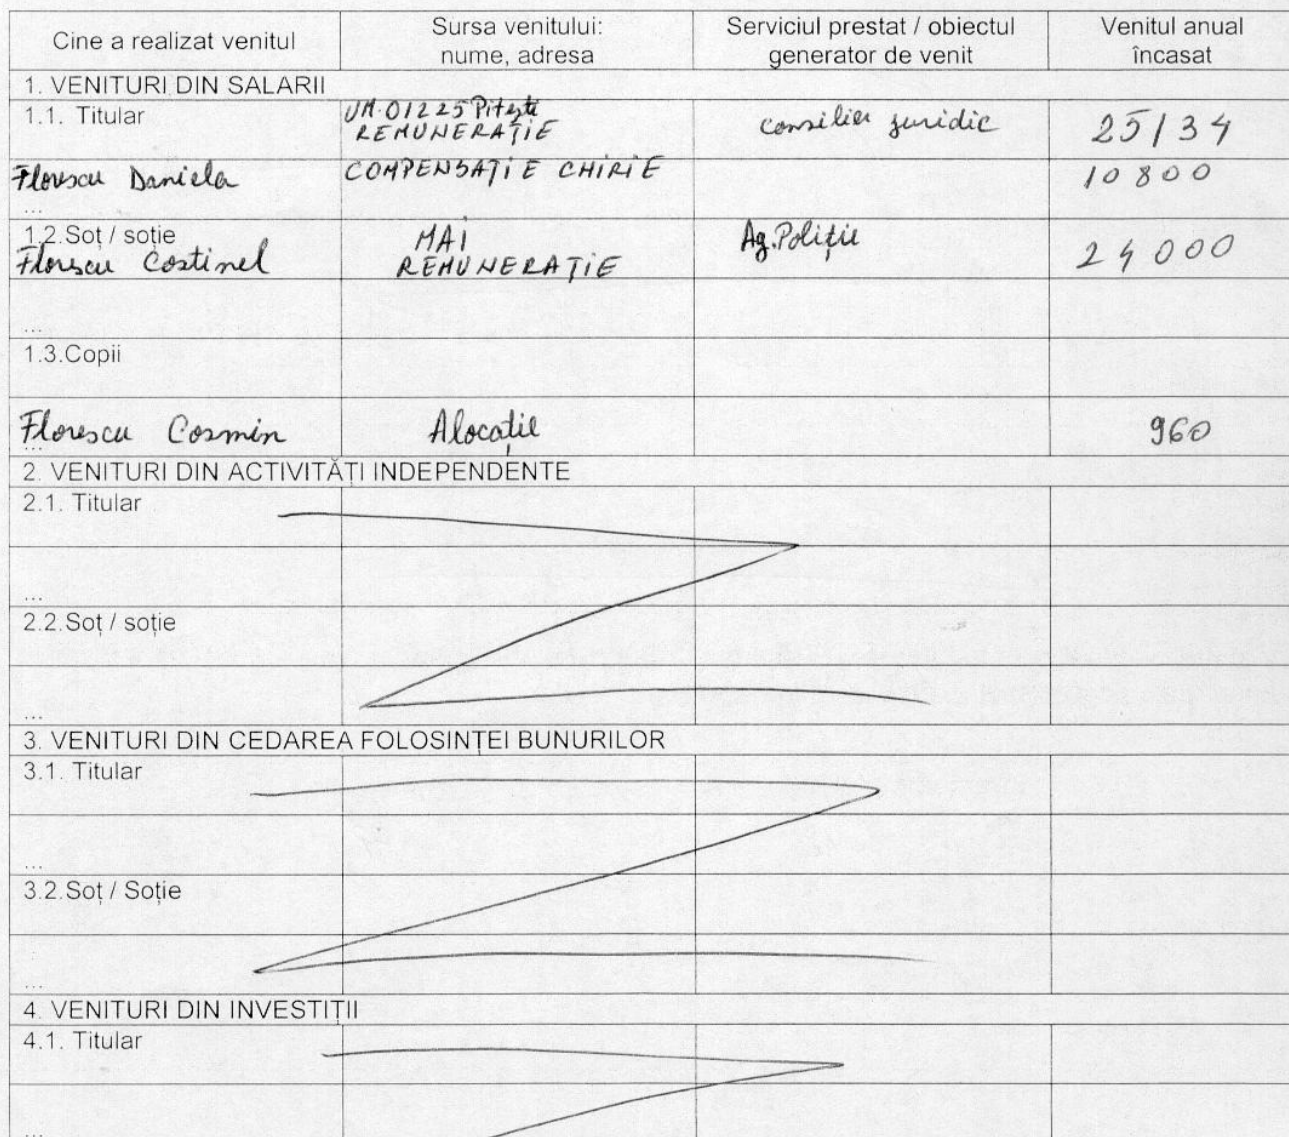 Cine a realizat venitul
Sursa venitului:
nume, adresa
Serviciul prestat / obiectul
generator de venit
Venitul anual
încasat
1. VENITURI DIN SALARII
1.1. Titular
UM.01225 Pitești
REMUNERAȚIE
consilier juridic
25134
Florescu Daniela
COMPENSAȚIE CHIRIE
10800
...
1.2.Soț / soție
Florescu Costinel
MAI
REMUNERAȚIE
Ag.Poliție
24000
...
1.3.Copii
Florescu Cosmin
Alocație
960
...
2. VENITURI DIN ACTIVITĂȚI INDEPENDENTE
2.1. Titular
...
2.2.Soț / soție
...
3. VENITURI DIN CEDAREA FOLOSINȚEI BUNURILOR
3.1. Titular
...
3.2.Soț / Soție
...
4. VENITURI DIN INVESTIȚII
4.1. Titular
...